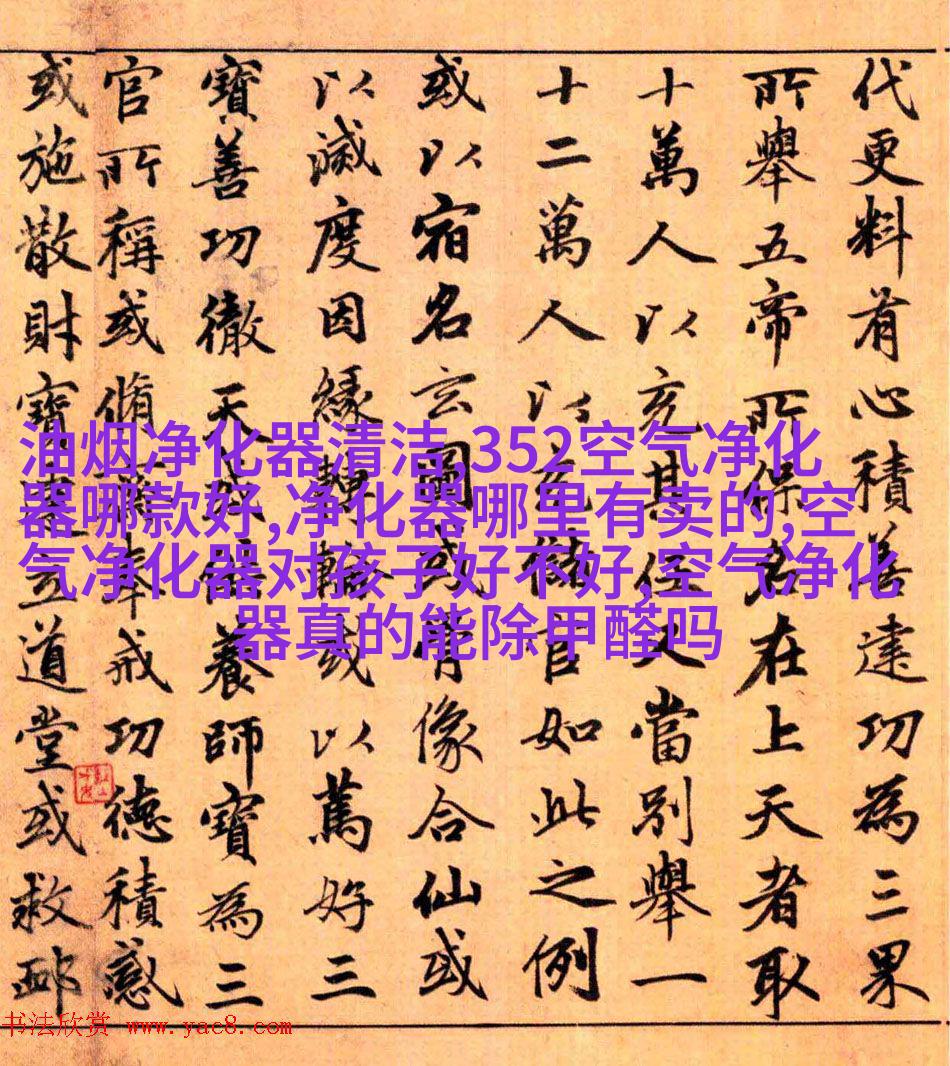 代更料有心積善建功為三果
所舉五帝所保名在上天者取
十萬人以充其任又當別舉一
十二萬人以充儲官如此之例
或以宿名玄圖或骨像合仙或
以滅度因緣轉輪或以篤好三
寶善功徹天或供養師寶為三
官所稱或脩齋奉戒功德積感
或施散財寶建立道堂或救卹
油烟净化器清洁,352空气净化
器哪款好,净化器哪里有卖的,空
气净化器对孩子好不好,空气净化
器真的能除甲醛吗
书法欣赏 www.yac8.com